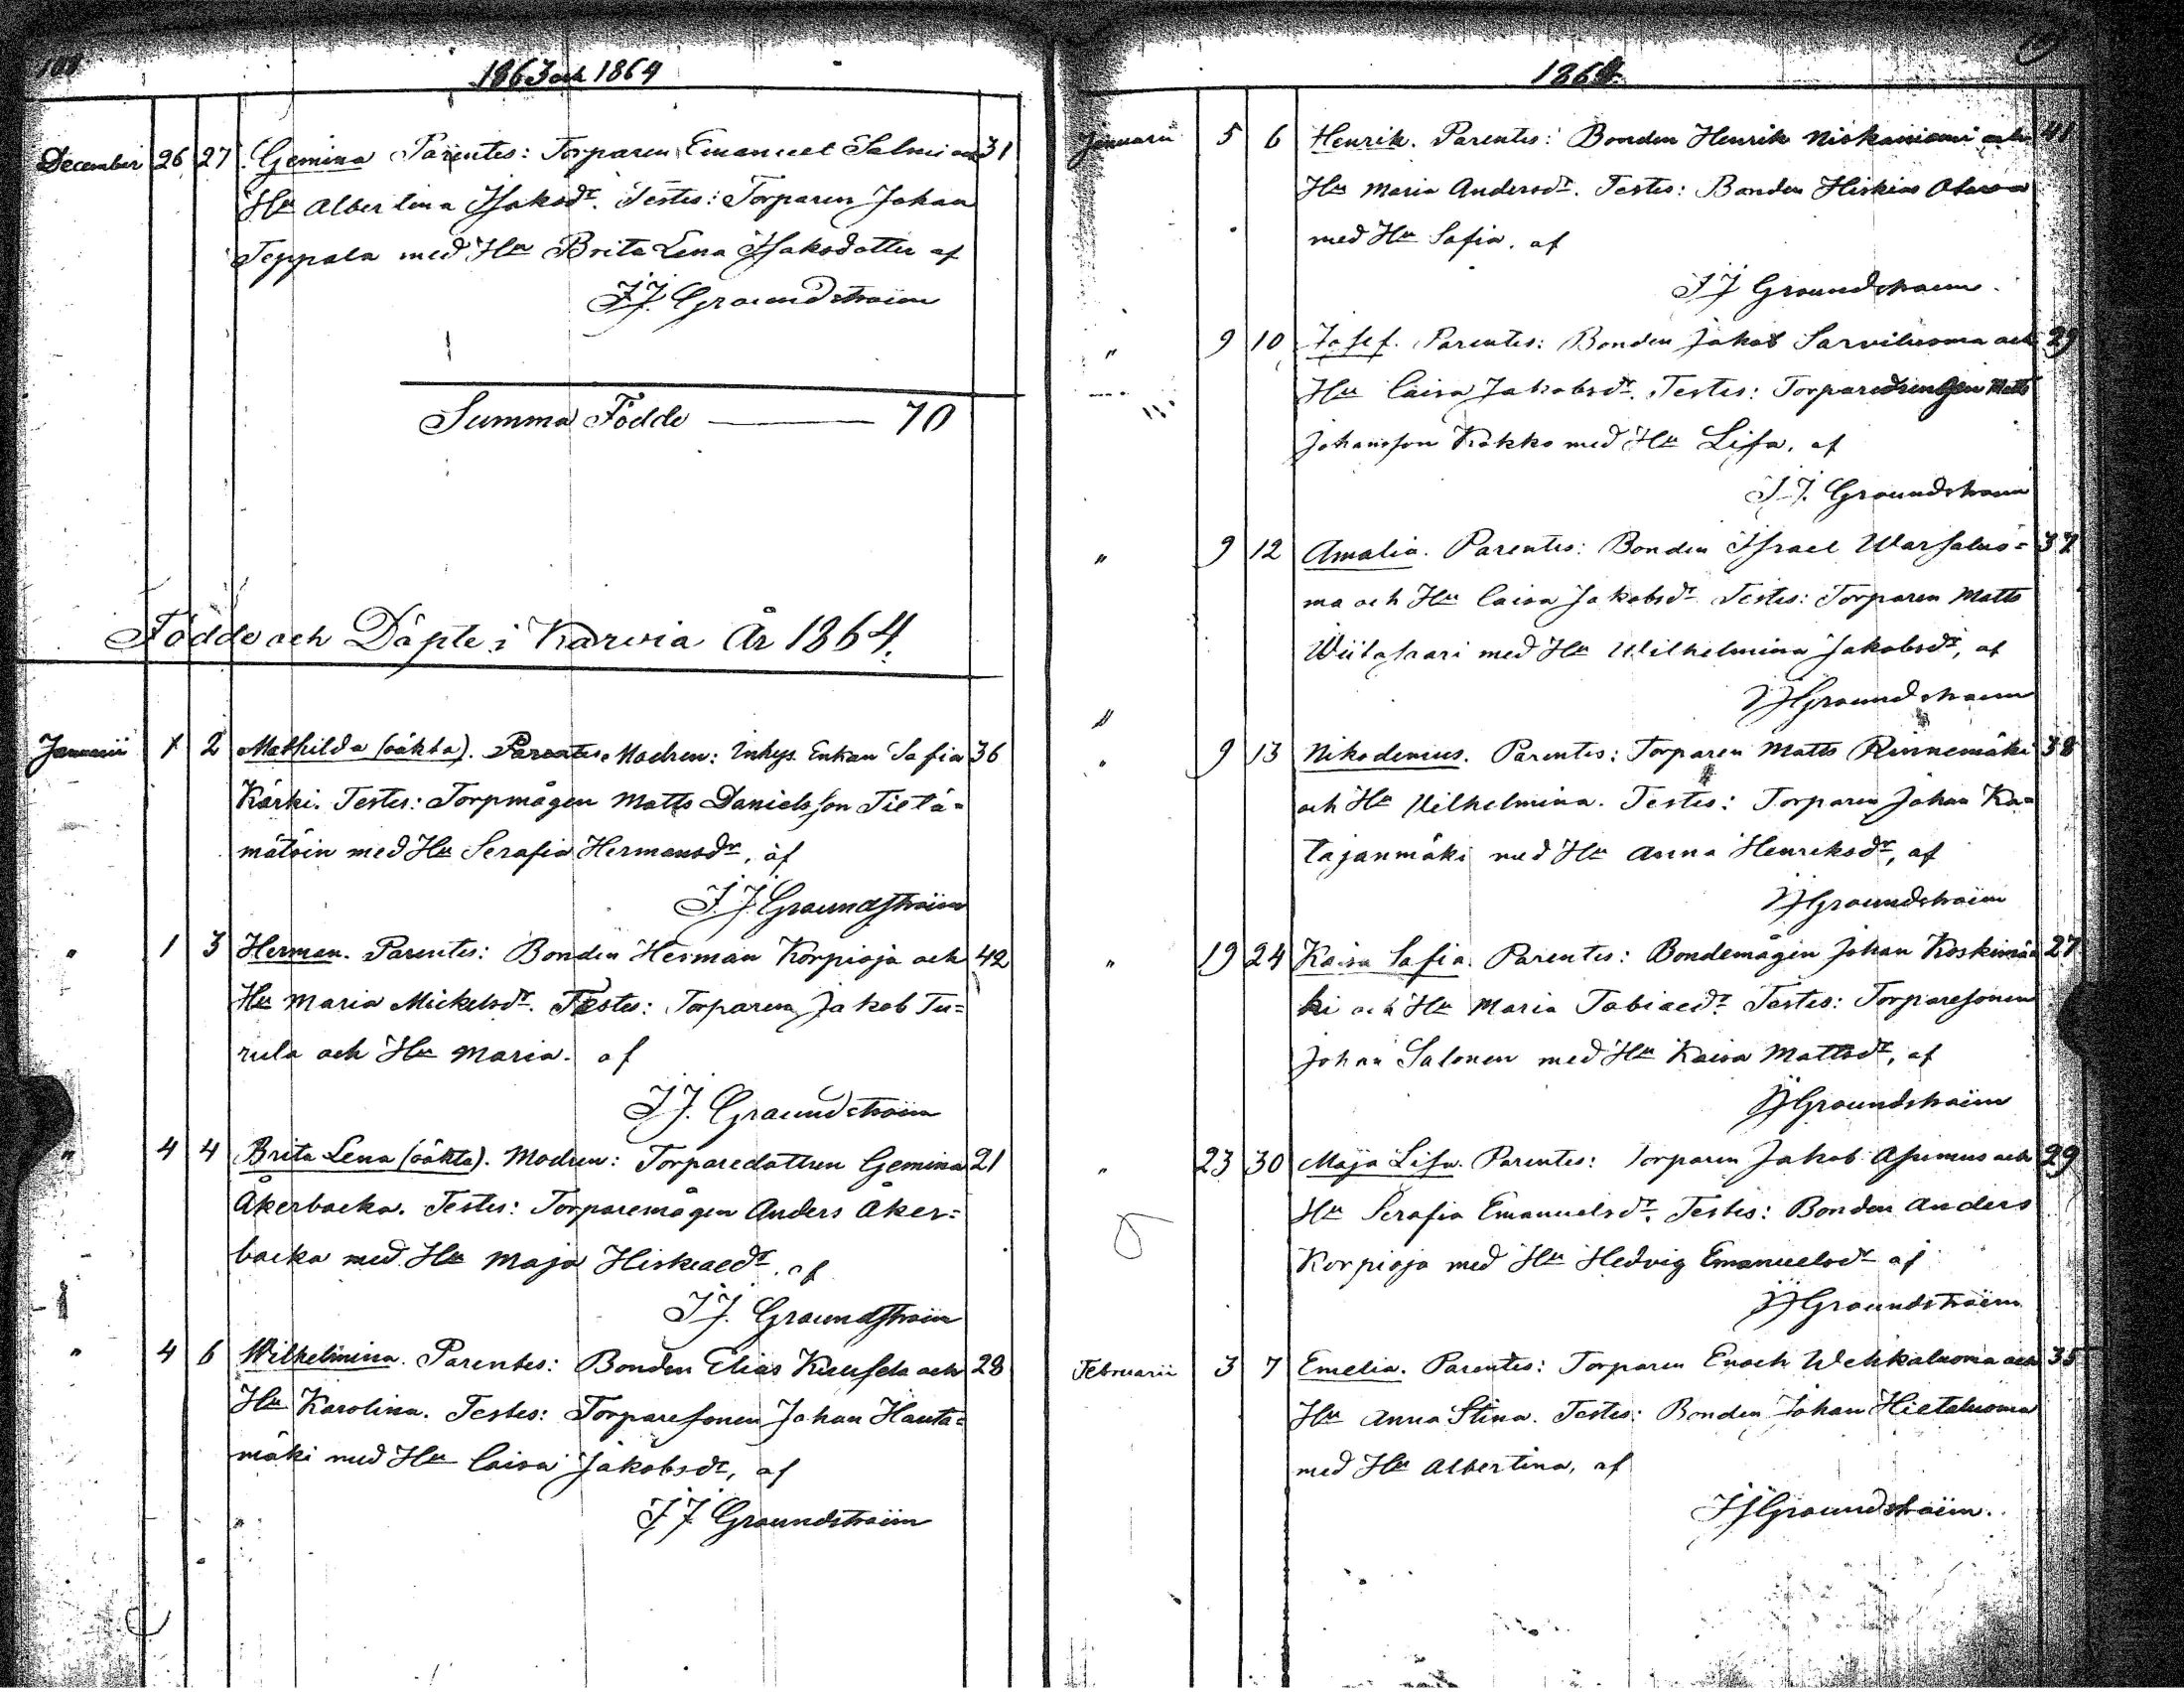 108
1863 och 1864
December 26 27 Gemina Parentes: Torparen Emanuel Salmi och 31
Hu Albertina Isaksdr. Testes: Torparen Johan
Seppala med Hu Brita Lena Isaksdotter af
F.J. Graundstroim
Summa Födde — 70
Födde och Döpte i Karvia År 1864.
Januarii 1 2 Mathilda (oäkta). Parentes Modren: Inhys. Enkan Sofia 36
Kärki. Testes: Torpmågen Matts Danielsson Tietä=
mätöin med Hu Serafia Hermansdr, af
F.J. Graundstroim
" 1 3 Herman. Parentes: Bonden Herman Korpioja och 42
Hu Maria Mickelsdr. Testes: Torparen Jakob Tu=
rula och Hu Maria. af
F.J. Graundstroim
" 4 4 Brita Lena (oäkta). Modren: Torparedottren Gemina 21
Åkerbacka. Testes: Torparemågen Anders Åker=
backa med Hu Maja Hiskiaedr. af
F.J. Graundstroim
" 4 6 Wilhelmina. Parentes: Bonden Elias Kuusela och 28
Hu Karolina. Testes: Torparesonen Johan Hauta=
mäki med Hu Caisa Jakobsdr, af
F.J. Graundstroim
1864.
Januarii 5 6 Henrik. Parentes: Bonden Henrik Niskaniemi och 41
Hu Maria Andersdr. Testes: Bonden Hiskias
med Hu Sofia. af
F.J. Graundstroim.
" 9 10 Josef. Parentes: Bonden Jakob Sarviluoma och 29
Hu Caisa Jakobsdr. Testes: Torparedrengen Matts
Johansson Kokko med Hu Lisa, af
F.J. Graundstroim
" 9 12 Amalia. Parentes: Bonden Israel Warsaluo= 37
ma och Hu Caisa Jakobsdr. Testes: Torparen Matts
Wiitasaari med Hu Wilhelmina Jakobsdr, af
F.J. Graundstroim
" 9 13 Nikodemus. Parentes: Torparen Matts Rinnemäki 38
och Hu Vilhelmina. Testes: Torparen Johan Ka=
tajanmäki med Hu Anna Henriksdr, af
F.J. Graundstroim
" 19 24 Kaisa Sofia. Parentes: Bondemågen Johan Koskimä= 27
ki och Hu Maria Tobiaedr. Testes: Torparesonen
Johan Salonen med Hu Kaisa Mattsdr, af
F.J. Graundstroim
" 23 30 Maja Lisa. Parentes: Torparen Jakob Asumus och 29
Hu Serafia Emanuelsdr. Testes: Bonden Anders
Korpioja med Hu Hedvig Emanuelsdr af
F.J. Graundstroim
Februarii 3 7 Emelia. Parentes: Torparen Enoch Wehkaluoma och 35
Hu Anna Stina. Testes: Bonden Johan Hietaluoma
med Hu Albertina, af
F.J. Graundstroim.